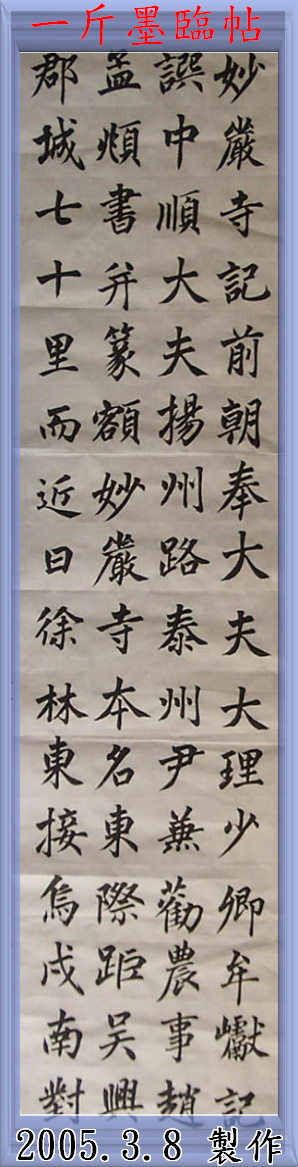 一斤墨臨帖
妙嚴寺記前朝奉大夫大理少卿牟巘記
譔中順大夫揚州路泰州尹兼勸農事趙
孟頫書并篆額妙嚴寺本名東際距吳興
郡城七十里而近曰徐林東接烏戍南對
2005.3.8 製作